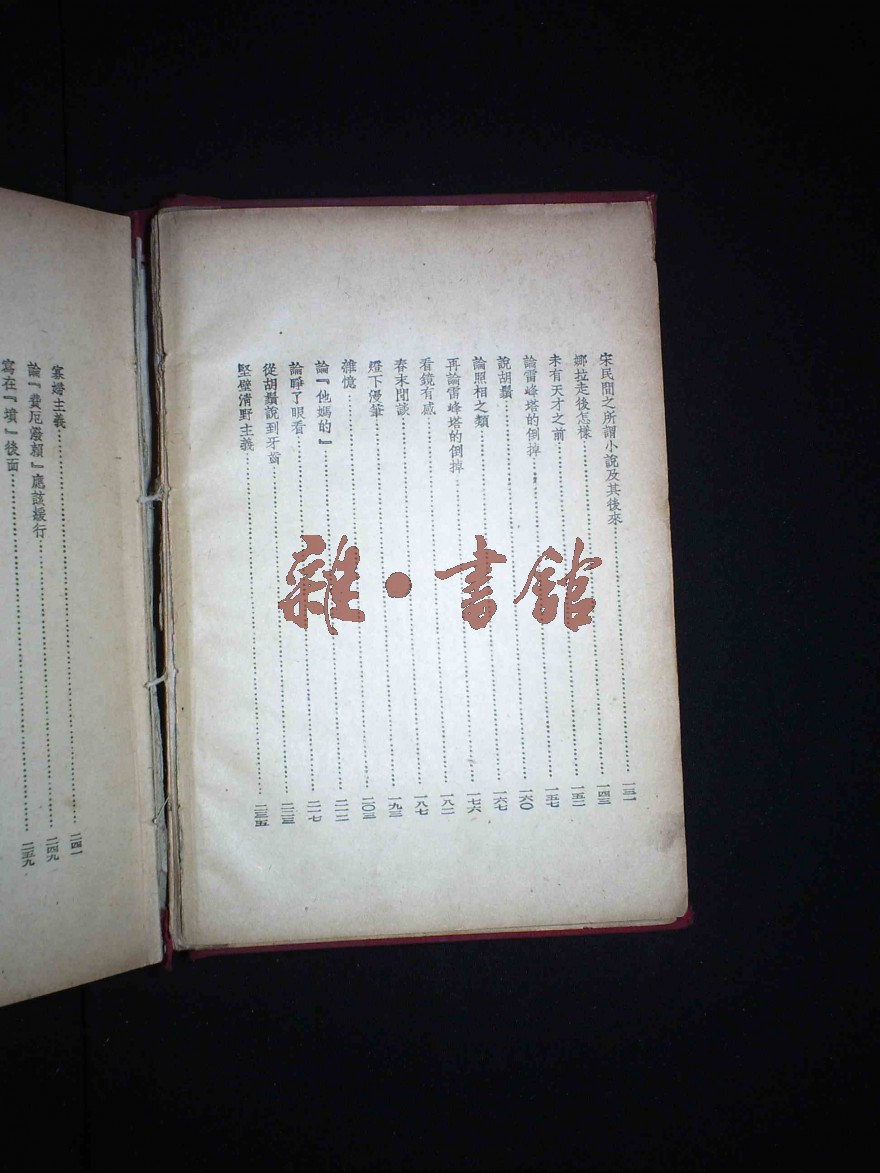 宋民間之所謂小說及其後來……一三一
娜拉走後怎樣……一四三
未有天才之前……一五二
論雷峰塔的倒掉……一五七
說胡鬚……一六〇
論照相之類……一六七
再論雷峰塔的倒掉……一七六
看鏡有感……一八二
春末閒談……一八七
燈下漫筆……一九三
雜憶……二〇三
論『他媽的』……二一二
論睜了眼看……二一七
從胡鬚說到牙齒……二二三
堅壁清野主義……二三五
寡婦主義……二四一
論『費厄潑賴』應該緩行……二四九
寫在『墳』後面……二五九
雜·書館